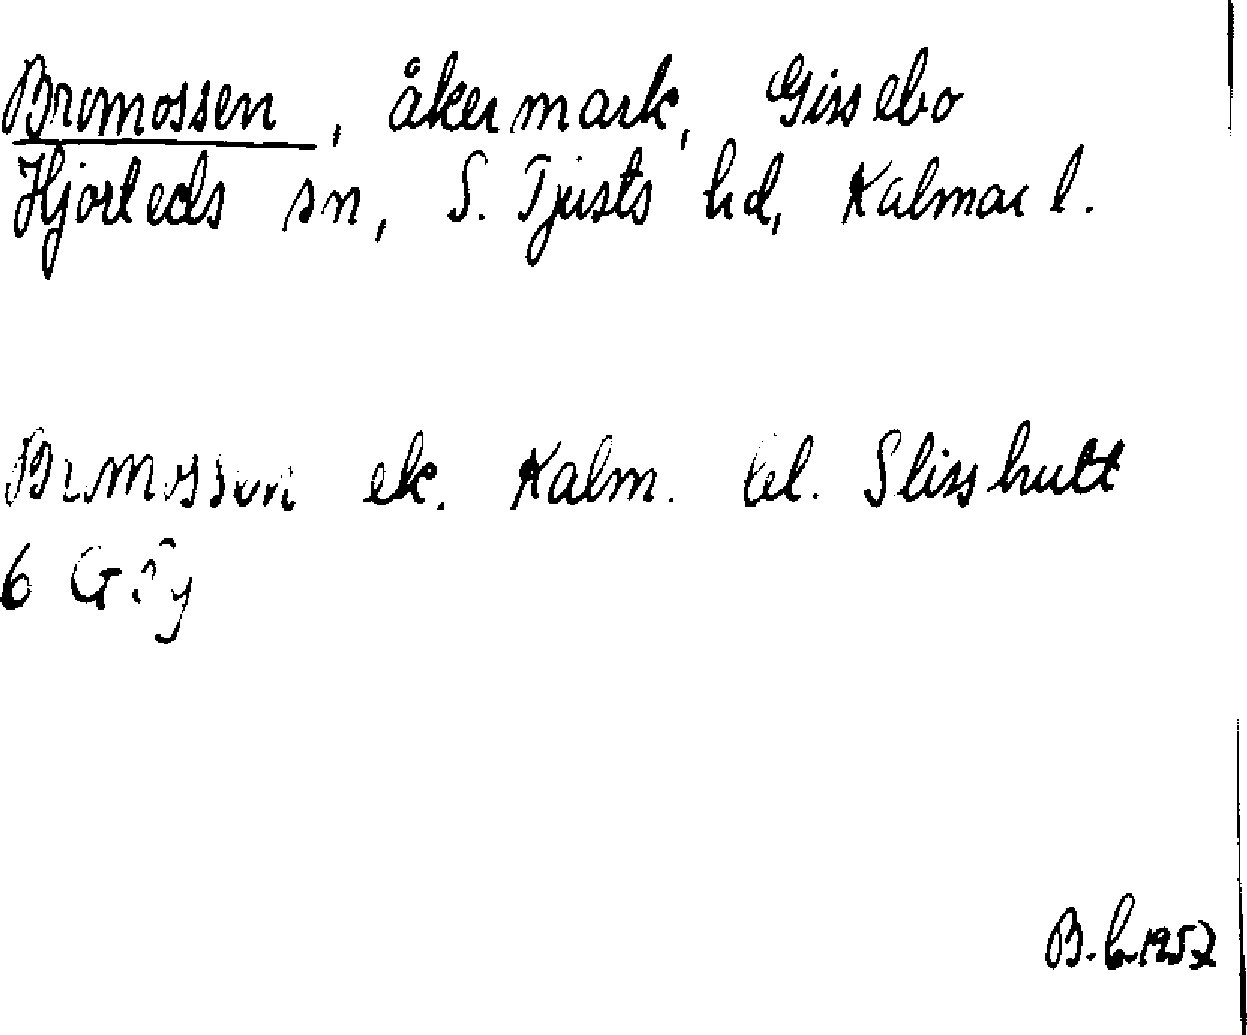 Bromossen, åkermark, Gissebo
Hjorteds sn, S. Tjusts hd, Kalmar l.
Bromossen ek. Kalm. bl. Slisshult
6 G
B. 1957